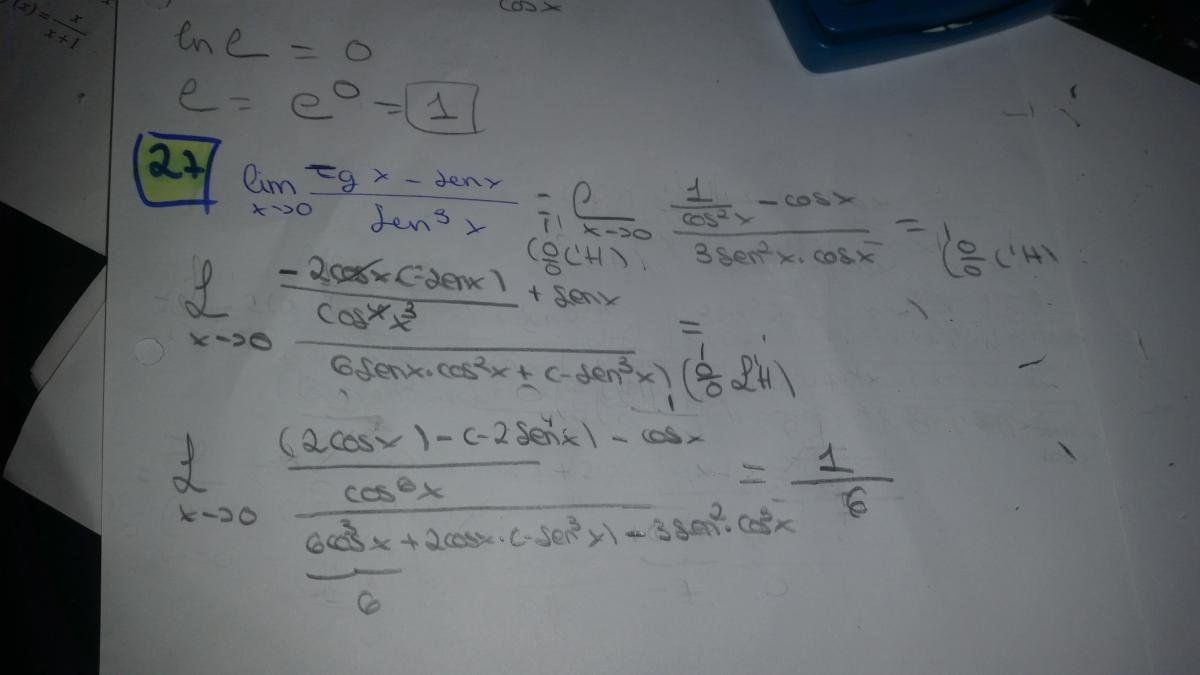 (x) = x/(x+1)
cos x
ln L = 0
L = e^0 = 1
27 lim x→0 (Tg x - sen x)/(sen³ x) = (0/0 (L'H)) L x→0 (1/cos²x - cos x)/(3 sen²x · cos x) = (0/0 (L'H))
L x→0 ((-2cos x (-sen x))/(cos⁴x ³) + sen x)/(6 sen x · cos²x + (-sen³x)) = (0/0 L'H)
L x→0 (((2cos x) - (-2 sen⁴x) - cos x)/(cos⁶x))/(6cos³x + 2cos x · (-sen³x) - 3 sen² · cos²x) = 1/6
6